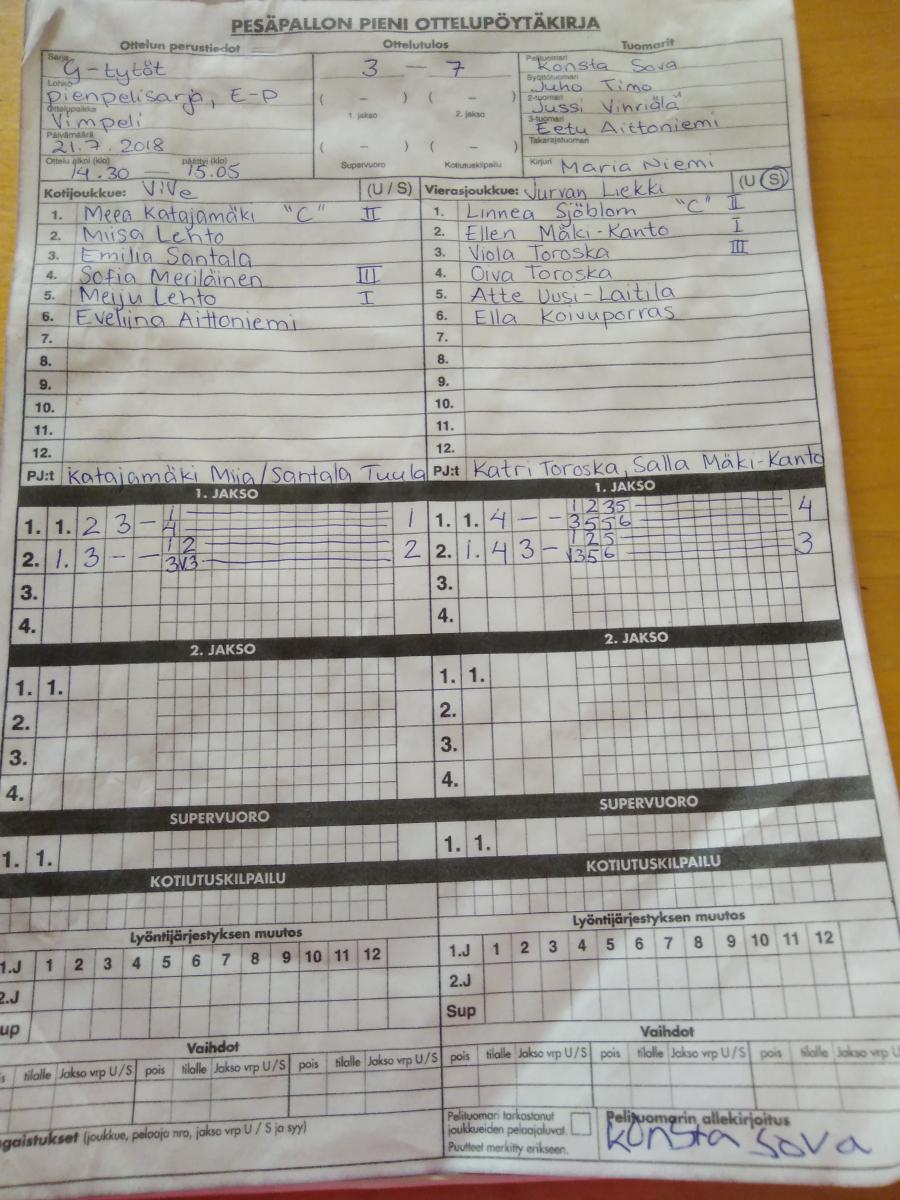 PESÄPALLON PIENI OTTELUPÖYTÄKIRJA
Ottelun perustiedot
Ottelutulos
Tuomarit
Sarja G-tytöt
Lohko pienpelisarja, E-P
Ottelupaikka Vimpeli
Päivämäärä 21.7.2018
Ottelu alkoi (klo) 14.30 — päättyi (klo) 15.05
3 — 7
( – ) ( – )
1. jakso 2. jakso
( – ) ( – )
Supervuoro Kotiutuskilpailu
Pelituomari Konsta Sova
Syöttötuomari Juho Timo
2-tuomari Jussi Vihriälä
3-tuomari Eetu Aittoniemi
Takarajatuomari
Kirjuri Maria Niemi
Kotijoukkue: ViVe (U / S)
1. Meea Katajamäki "C" II
2. Miisa Lehto
3. Emilia Santala
4. Sofia Meriläinen III
5. Meiju Lehto I
6. Eveliina Aittoniemi
7.
8.
9.
10.
11.
12.
PJ:t Katajamäki Miia/Santala Tuula
Vierasjoukkue: Jurvan Liekki (U S)
1. Linnea Sjöblom "C" II
2. Ellen Mäki-Kanto I
3. Viola Toroska III
4. Oiva Toroska
5. Atte Uusi-Laitila
6. Ella Koivuporras
7.
8.
9.
10.
11.
12.
PJ:t Katri Toroska, Salla Mäki-Kanto
1. JAKSO
1. 1. 2 3 – 1 4 1
2. 1. 3 – – 1 2 3 V3 2
3.
4.
1. JAKSO
1. 1. 4 – – 1 2 3 5 3 5 5 6 4
2. 1. 4 3 – 1 2 5 V3 5 6 3
3.
4.
2. JAKSO
1. 1.
2.
3.
4.
2. JAKSO
1. 1.
2.
3.
4.
SUPERVUORO
1. 1.
SUPERVUORO
1. 1.
KOTIUTUSKILPAILU
KOTIUTUSKILPAILU
Lyöntijärjestyksen muutos
1.J 1 2 3 4 5 6 7 8 9 10 11 12
2.J
up
Lyöntijärjestyksen muutos
1.J 1 2 3 4 5 6 7 8 9 10 11 12
2.J
Sup
Vaihdot
is tilalle Jakso vrp U/S pois tilalle Jakso vrp U/S pois tilalle Jakso vrp U/S
Vaihdot
pois tilalle Jakso vrp U/S pois tilalle Jakso vrp U/S pois tilalle Jakso vrp U
ngaistukset (joukkue, pelaaja nro, jakso vrp U / S ja syy)
Pelituomari tarkastanut
joukkueiden pelaajaluvat.
Puutteet merkitty erikseen.
Pelituomarin allekirjoitus
Konsta Sova